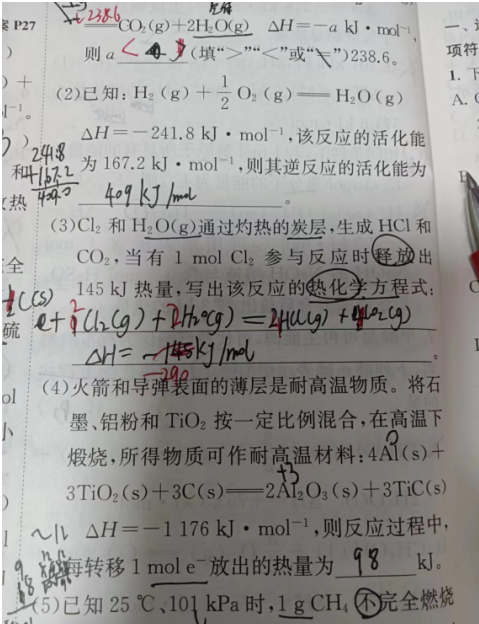 =238.6
CO₂(g)+2H₂O(g) ΔH=-a kJ·mol⁻¹,
P27
则a < (填“>”“<”或“=”)238.6。
(2)已知:H₂(g)+1/2O₂(g)══H₂O(g)
ΔH=-241.8 kJ·mol⁻¹,该反应的活化能
241.8
+167.2
409.0
为167.2 kJ·mol⁻¹,则其逆反应的活化能为
409 kJ/mol 。
(3)Cl₂和H₂O(g)通过灼热的炭层,生成HCl和
CO₂,当有1 mol Cl₂参与反应时释放出
145 kJ热量,写出该反应的热化学方程式:
C(s)
+2Cl₂(g)+2H₂O(g)=4HCl(g)+CO₂(g)
ΔH= -145 kJ/mol 。
-290
(4)火箭和导弹表面的薄层是耐高温物质。将石
墨、铝粉和TiO₂按一定比例混合,在高温下
煅烧,所得物质可作耐高温材料:4Al(s)+
0
3TiO₂(s)+3C(s)══2Al₂O₃(s)+3TiC(s)
+3
ΔH=-1 176 kJ·mol⁻¹,则反应过程中,
每转移1 mol e⁻放出的热量为 98 kJ。
(5)已知25 ℃、101 kPa时,1 g CH₄不完全燃烧